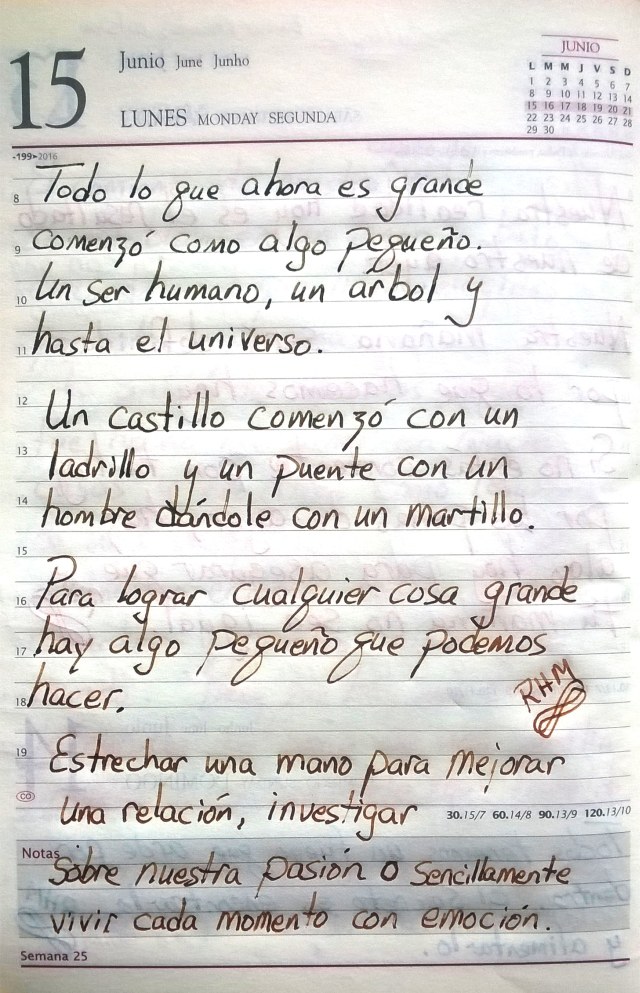 15 Junio June Junho
LUNES MONDAY SEGUNDA
JUNIO
L M M J V S D
1 2 3 4 5 6 7
8 9 10 11 12 13 14
15 16 17 18 19 20 21
22 23 24 25 26 27 28
29 30
-199▸2016
8 Todo lo que ahora es grande
9 comenzó como algo pequeño.
10 Un ser humano, un árbol y
11 hasta el universo.
12 Un castillo comenzó con un
13 ladrillo y un puente con un
14 hombre dándole con un martillo.
15
16 Para lograr cualquier cosa grande
17 hay algo pequeño que podemos
18 hacer.
RHM
19 Estrechar una mano para mejorar
CO una relación, investigar
30.15/7 60.14/8 90.13/9 120.13/10
Notas
sobre nuestra pasión o sencillamente
vivir cada momento con emoción.
Semana 25